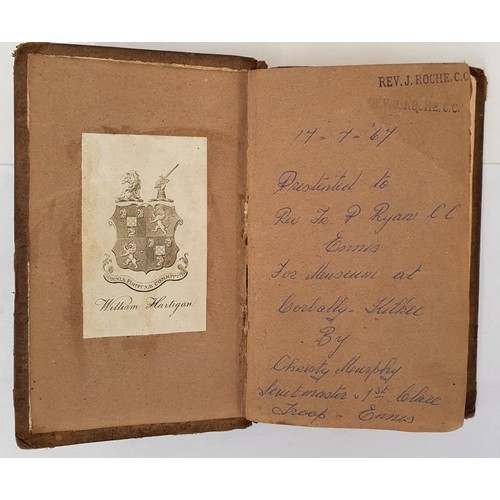 William Hartigan
REV. J. ROCHE, C.C.
REV. J. ROCHE, C.C.
17-7-'67
Presented to
Rev Fr. P Ryan C C
Ennis
For Museum at
Corbally - Kilkee
By
Christy Murphy
Scoutmaster, 1st Clare
Troop - Ennis